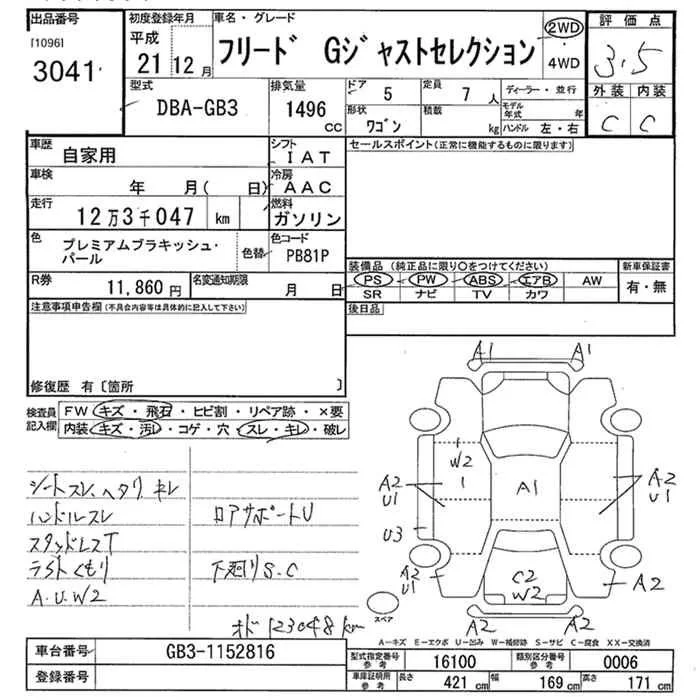 出品番号
[1096]
3041
初度登録年月
平成
21 12月
車名・グレード
フリード Gジャストセレクション
2WD
・
4WD
評価点
3.5
外装 内装
C C
型式
DBA-GB3
排気量
1496
CC
ドア
5
定員
7人
形状
ワゴン
積載
kg
ディーラー・並行
モデル年式 年
ハンドル 左・右
車歴
自家用
シフト
IAT
車検
年 月( 日)
冷房
AAC
走行
12万3千047 km
燃料
ガソリン
色
プレミアムブラキッシュ・
パール
色替
色コード
PB81P
R券
11,860円
名変通知期限
月 日
セールスポイント(正常に機能するものに限ります)
装備品 (純正品に限り○をつけてください)
PS PW ABS エアB AW
SR ナビ TV カワ
新車保証書
有・無
後日品
注意事項申告欄(不具合内容等は具体的に記入して下さい)
修復歴 有〔箇所 〕
検査員
記入欄
FW キズ・飛石・ヒビ割・リペア跡・×要
内装 キズ・汚レ・コゲ・穴・スレ・キレ・破レ
シートスレ、ヘタリ、キレ
ハンドルスレ
ロアサポートU
スタッドレスT
ライトくもり
下廻りS.C
A.U.W2
オド123048km
A1 A1
W2
1
A1
A2
U1
A2
U1
U3
A2
U1
C2
W2
A2
A2 A2
スペア
A-キズ E-エクボ U-凹み W-補修跡 S-サビ C-腐食 XX-交換済
車台番号
GB3-1152816
登録番号
型式指定番号
参考
16100
類別区分番号
参考
0006
車庫証明所
参考
長さ
421cm
幅
169cm
高さ
171cm